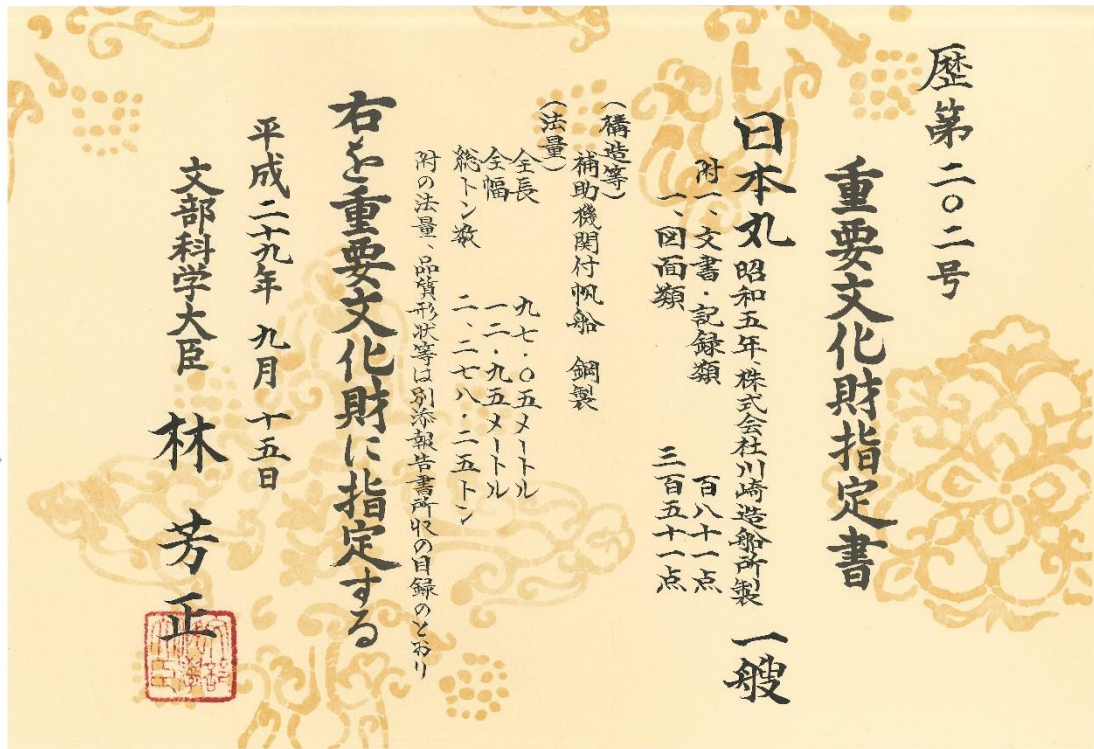 歴第二〇二号
重要文化財指定書
日本丸 昭和五年、株式会社川崎造船所製 一艘
附一、文書・記録類 百八十一点
一、図面類 三百五十一点
（構造等）
補助機関付帆船 鋼製
（法量）
全長 九七・〇五メートル
全幅 一二・九五メートル
総トン数 二、二七八・二五トン
附の法量、品質形状等は別添報告書所収の目録のとおり
右を重要文化財に指定する
平成二十九年 九月 十五日
文部科学大臣 林 芳正
文部科学大臣